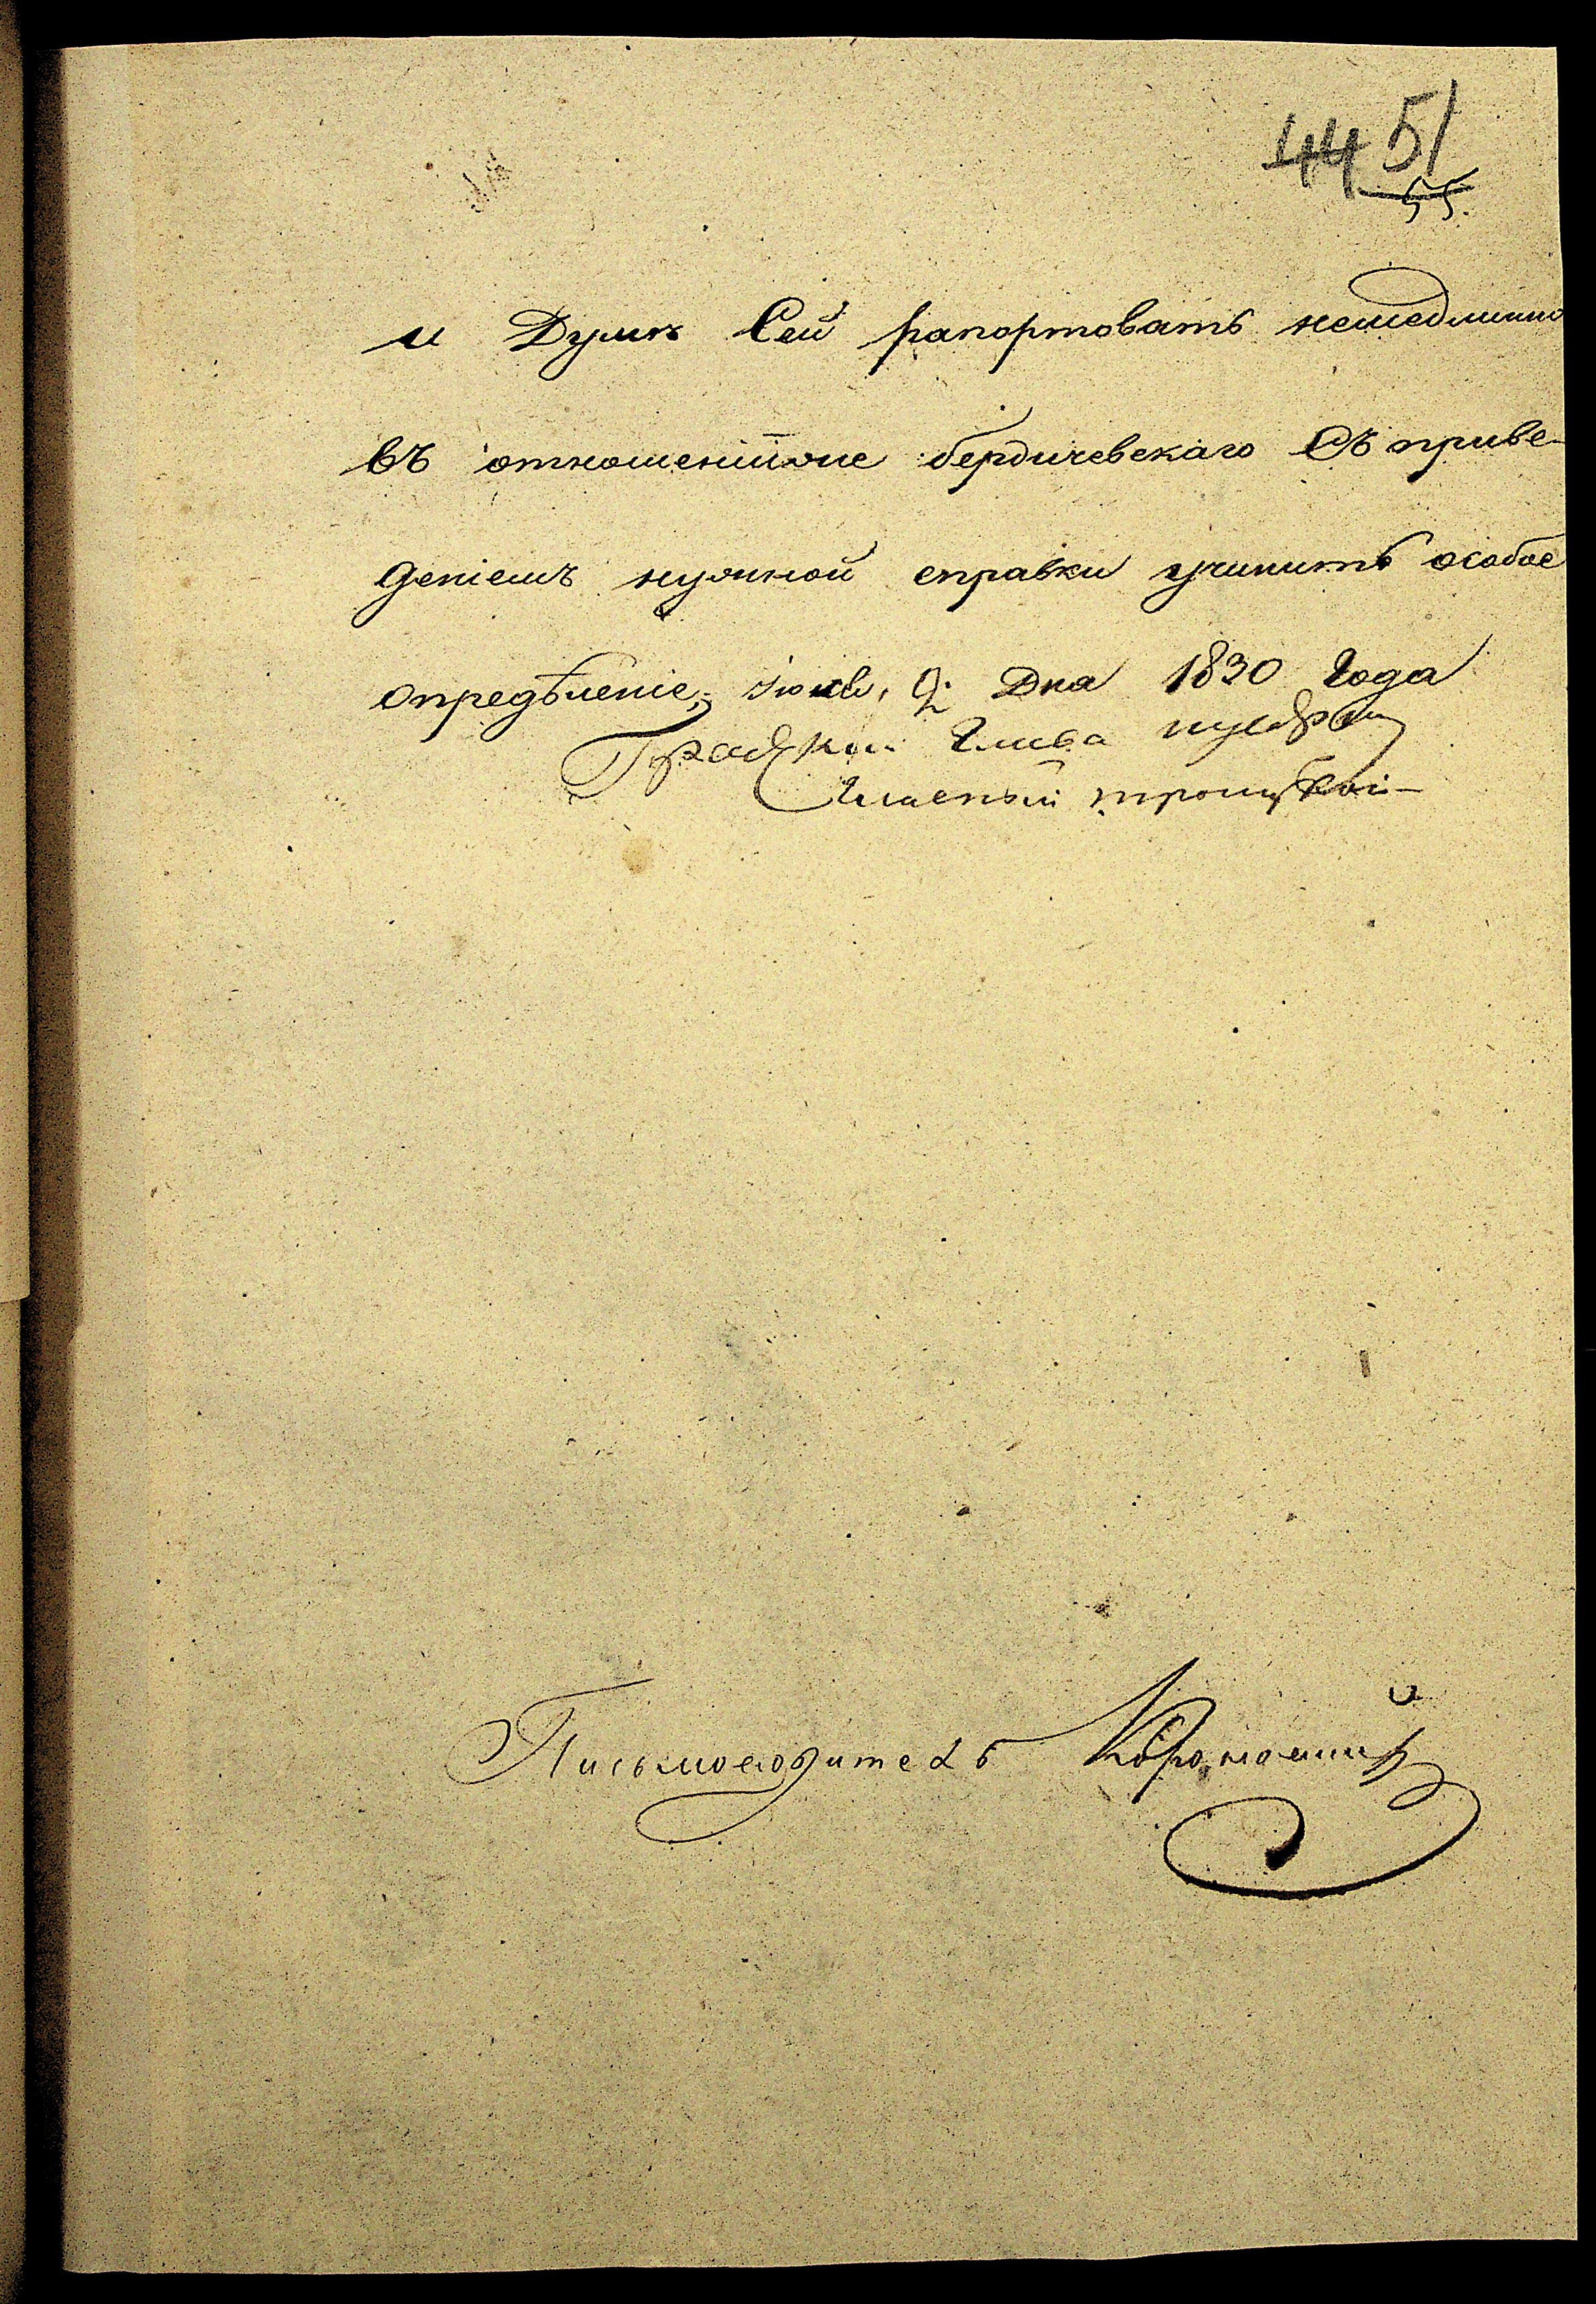 44 51
55.
и Думѣ Сей рапортовать немедленно
въ отношеніи же бердичевскаго Съ приве-
деніемъ нужной справки учинить особое
опредѣленіе, Іюля, 9: Дня 1830 Года
Градской Глава
Гласный троцкой
Письмоводитель